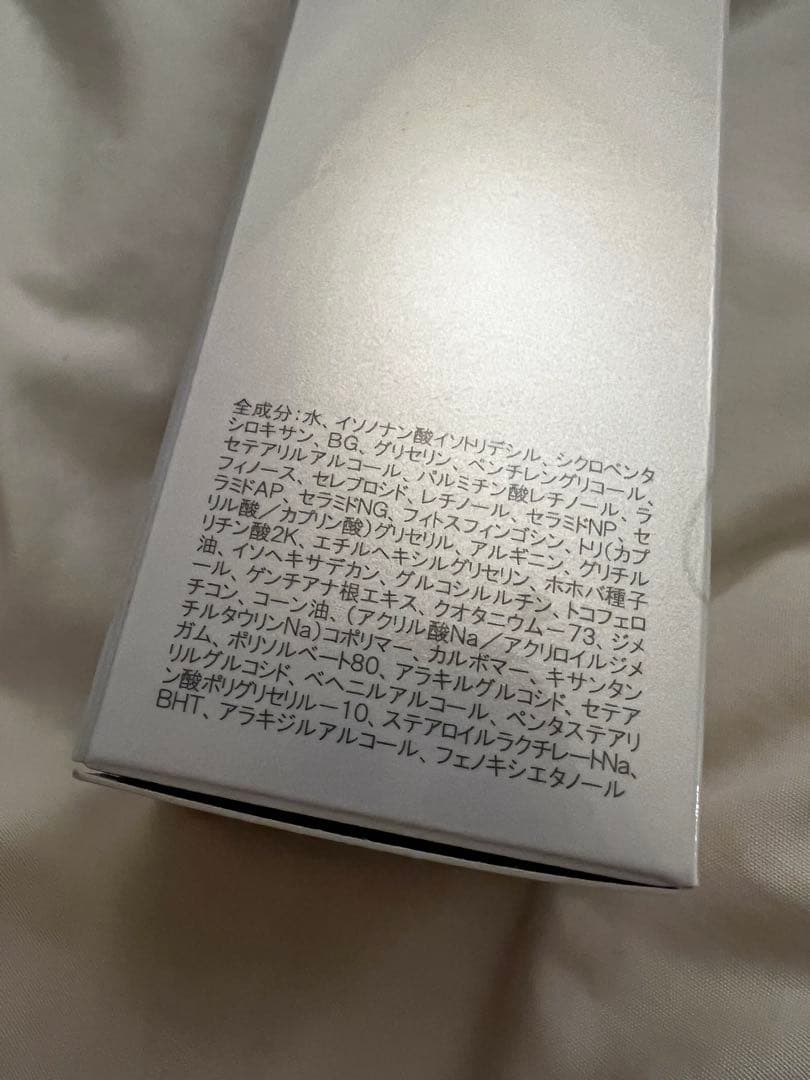 全成分：水、イソノナン酸イソトリデシル、シクロペンタ
シロキサン、BG、グリセリン、ペンチレングリコール、
セテアリルアルコール、パルミチン酸レチノール、ラ
フィノース、セレブロシド、レチノール、セラミドNP、セ
ラミドAP、セラミドNG、フィトスフィンゴシン、トリ（カプ
リル酸／カプリン酸）グリセリル、アルギニン、グリチル
リチン酸2K、エチルヘキシルグリセリン、ホホバ種子
油、イソヘキサデカン、グルコシルルチン、トコフェロ
ール、ゲンチアナ根エキス、クオタニウム－73、ジメ
チコン、コーン油、（アクリル酸Na／アクリロイルジメ
チルタウリンNa）コポリマー、カルボマー、キサンタン
ガム、ポリソルベート80、アラキルグルコシド、セテア
リルグルコシド、ベヘニルアルコール、ペンタステアリ
ン酸ポリグリセリル－10、ステアロイルラクチレートNa、
BHT、アラキジルアルコール、フェノキシエタノール